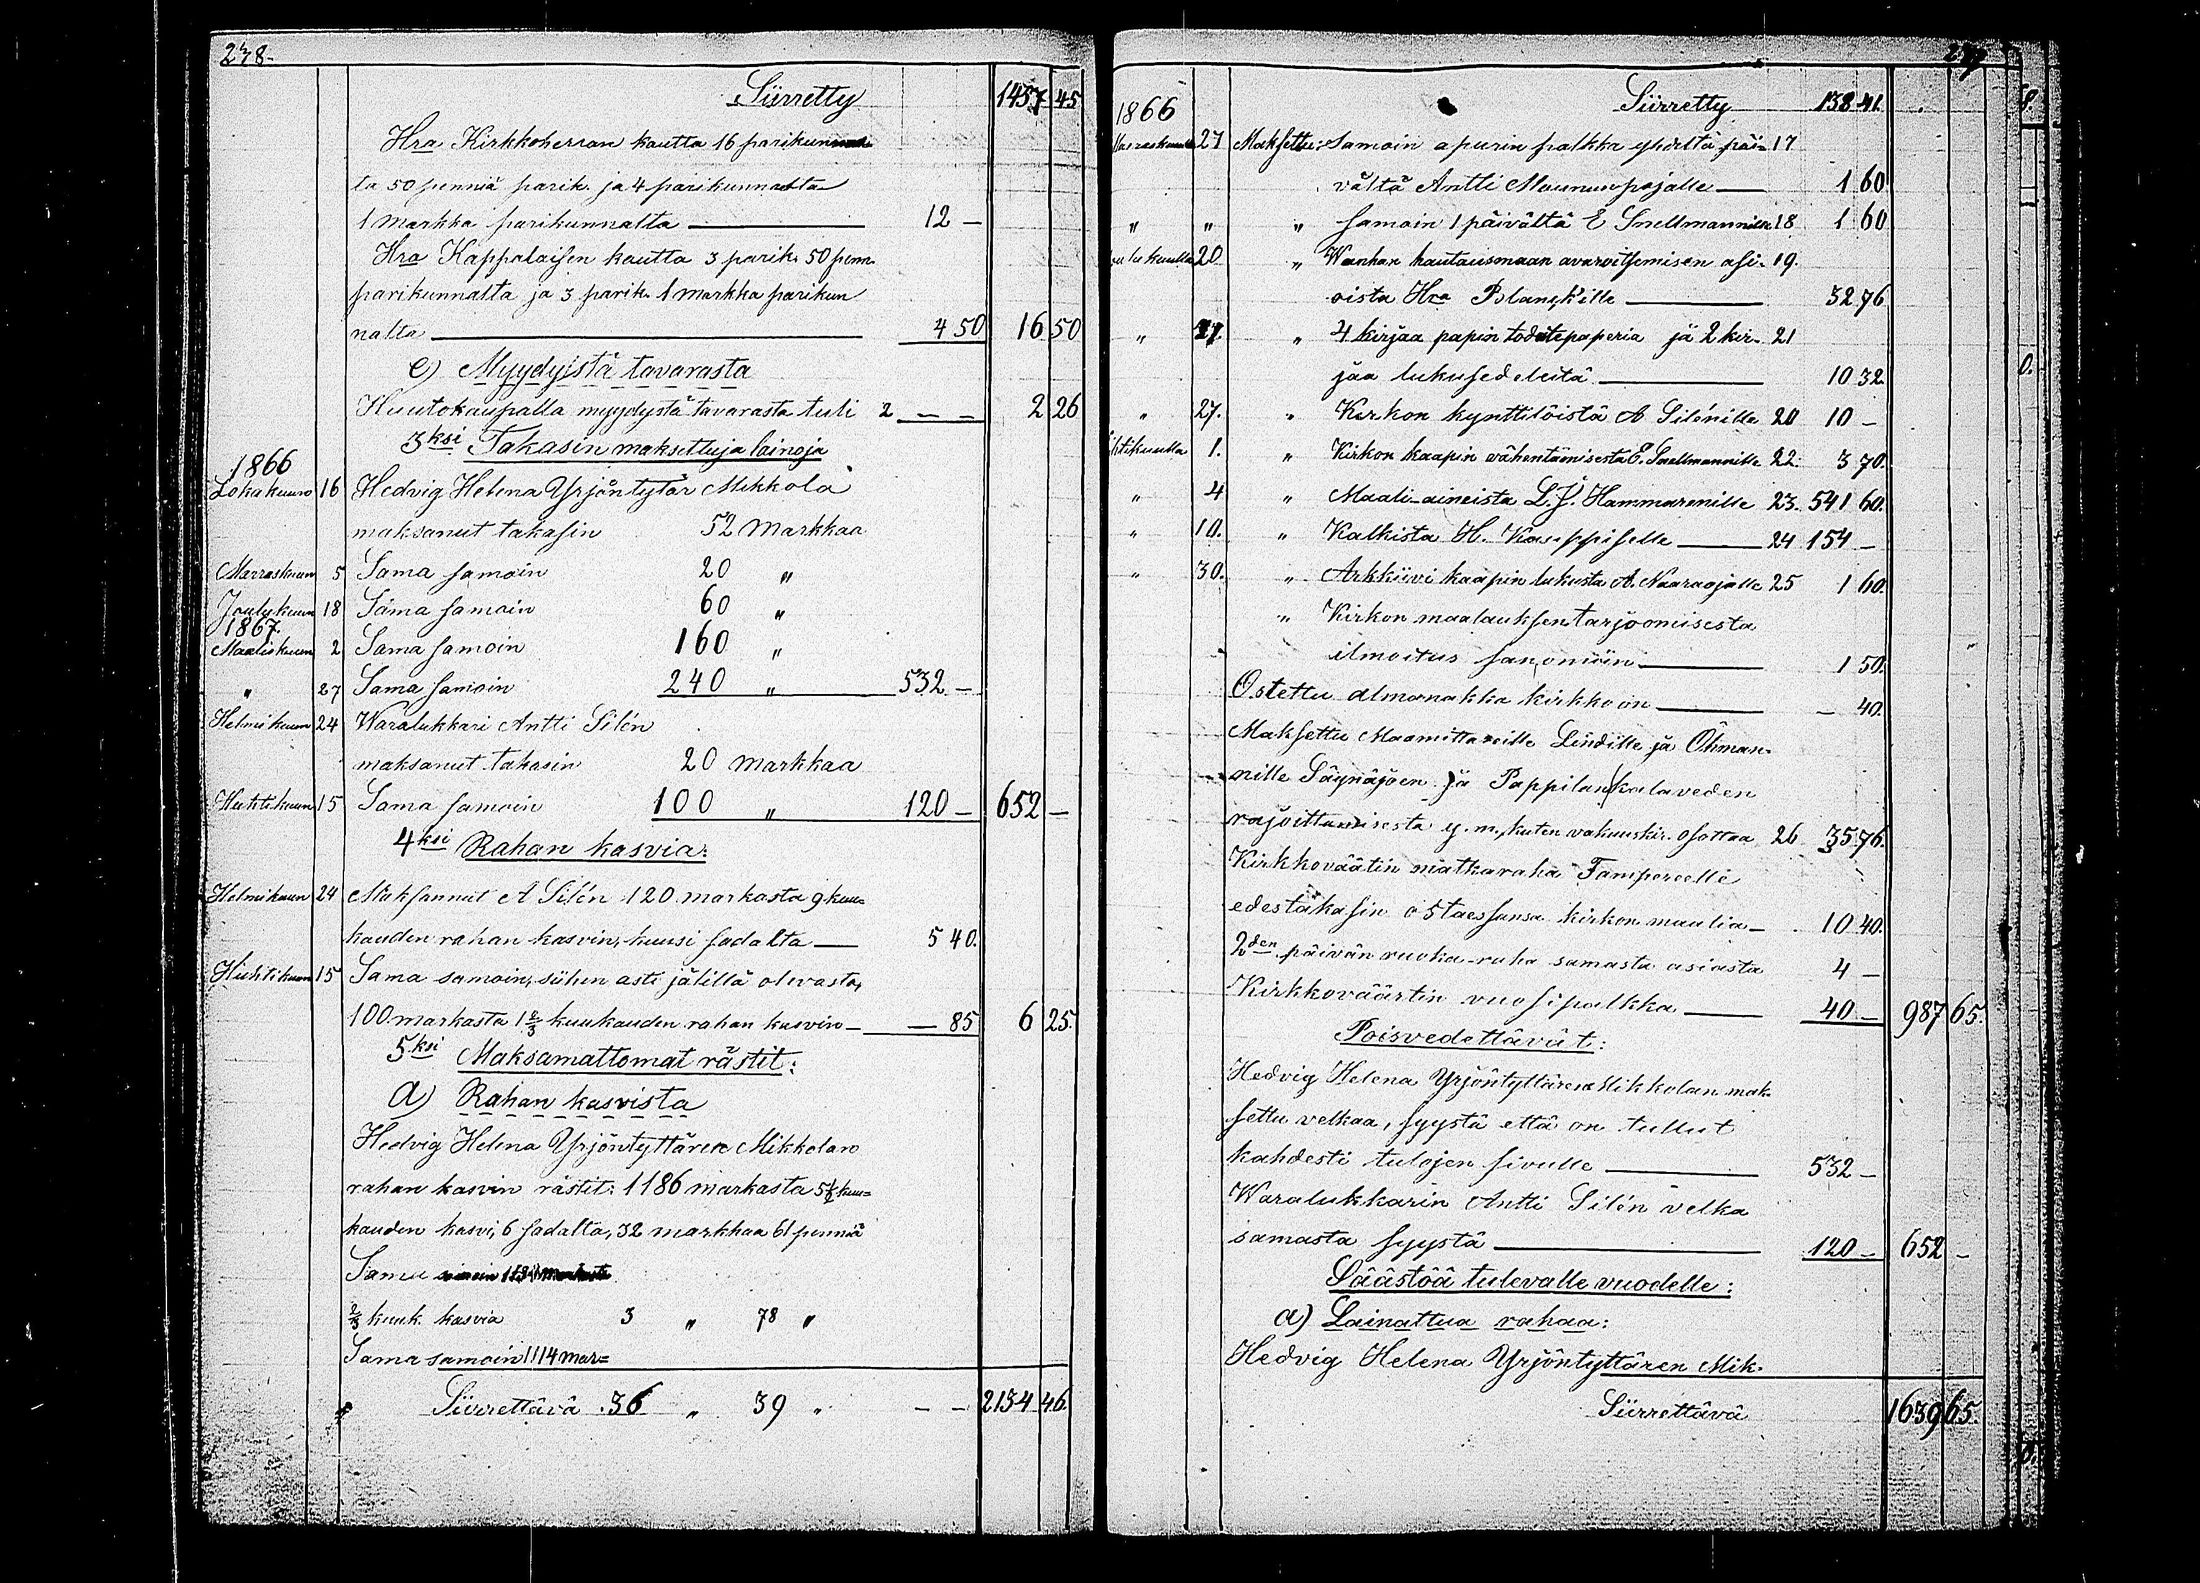 238.
Siirretty 1457 45
Hra Kirkkoherran kautta 16 parikunnal
ta 50 penniä parik. ja 4 parikunnalta
1 markka parikunnalta 12 —
Hra Kappalaisen kautta 3 parik. 50 penn.
parikunnalta ja 3 parik. 1 markka parikun
nalta 4 50 16 50
e) Myydyistä tavarasta
Huutokaupalla myydystä tavarasta tuli 2 — — 2 26
3ksi Takasin maksettuja lainoja
1866
Lokakuun 16 Hedvig Helena Yrjöntytär Mikkola
maksanut takasin 52 markkaa
Marraskuun 5 Sama samoin 20 "
Joulukuun 18 Sama samoin 60 "
1867.
Maaliskuun 2 Sama samoin 160 "
" 27 Sama samoin 240 " 532 —
Helmikuun 24 Waralukkari Antti Silén
maksanut takasin 20 markkaa
Huhtikuun 15 Sama samoin 100 " 120 — 652 —
4ksi Rahan kasvia:
Helmikuun 24 Maksannut A Silén 120 markasta 9 kuu=
kauden rahan kasvin, kuusi sadalta 5 40.
Huhtikuun 15 Sama samoin, siihen asti jälillä olevasta,
100 markasta 1 2/3 kuukauden rahan kasvin — — 85 6 25.
5ksi Maksamattomat rästit:
a) Rahan kasvista
Hedvig Helena Yrjöntyttären Mikkolan
rahan kasvin rästit: 1186 markasta 5 1/2 kuu=
kauden kasvi, 6 sadalta, 32 markkaa 61 penniä
Sama
2/3 kuuk. kasvia 3 " 78 "
Sama samoin 1114 mar=
Siirrettävä 36 " 39 " — — 2134 46.
1866 Siirretty 138 41.
27 Maksettu: Samoin apurin palkka yhdeltä päi= 17
vältä Antti Maununpajalle 1 60
" " " samoin 1 päivältä E Snellmannille 18 1 60
20 " Wanhan hautausmaan avarvitsemisen asi= 19.
oista Hra Polangkille 32 76
" 27. " 4 kirjaa papin todistepaperia ja 2 kir= 21
jaa lukusedeleitä 10 32.
" 27. " Kirkon kynttilöistä A Silénille 20 10 —
1. " Kirkon kaapin vähentämisestä E. Snellmannille 22. 3 70.
" 4 " Maali-aineista L. J. Hammarenille 23. 541 60.
" 10. " Kalkista H. Kauppiselle 24 154 —
" 30. " Arkkiivi kaapin lukusta A. Naaraojalle 25 1 60.
" Kirkon maalauksen tarjoomisesta
ilmoitus sanomiin 1 50.
Ostettu almanakka kirkkoon — 40.
Maksettu Maamittareille Lindille ja Öhman=
nille Säynäjoen ja Pappilan kalaveden
rajoittamisesta y. m., kuten vakuuskir. osottaa 26 35 76.
Kirkkoväätin matkaraha Tampereelle
edestäkasin ostaessansa kirkon maalia — 10 40.
2den päivän ruoka-raha samasta asiasta 4 —
Kirkkoväärtin vuosipalkka 40 — 987 65.
Poisvedettävät:
Hedvig Helena Yrjöntyttären Mikkolan mak=
settu velkaa, syystä että on tullut
kahdesti tulojen sivulle 532 —
Waralukkarin Antti Silén velka
samasta syystä 120 — 652 —
Säästöä tulevalle vuodelle:
a) Lainattua rahaa:
Hedvig Helena Yrjöntyttären Mik=
Siirrettävä 1639 65.